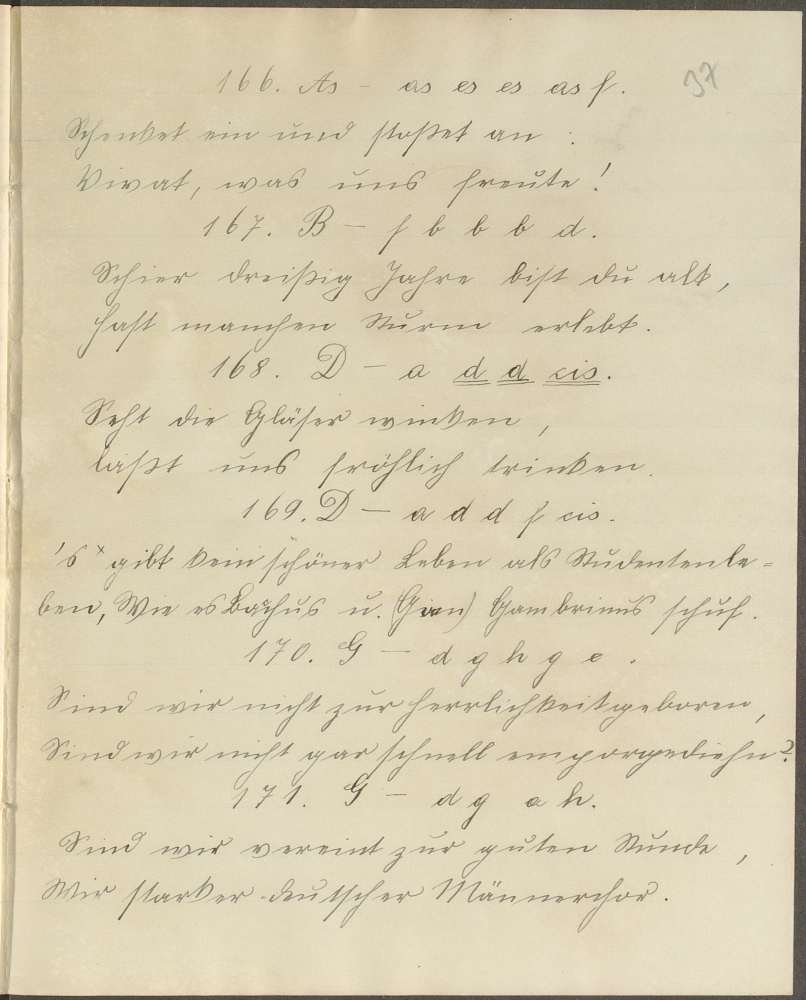 37
166. As – as es es as f.
Schenket ein und stoßet an :
Vivat, was uns freute!
167. B – f b b b d.
Schier dreißig Jahre bist du alt,
hast manchen Sturm erlebt.
168. D – a d d cis.
Seht die Gläser winken,
laßt uns fröhlich trinken.
169. D – a d d f cis.
's gibt kein schöner Leben als Studentenle=
ben, Wie es Bachus u. Gambrinus schuf.
170. G – d g h g e.
Sind wir nicht zur Herrlichkeit geboren,
Sind wir nicht gar schnell emporgediehn?
171. G – d g a h.
Sind wir vereint zur guten Stunde,
Wir starker deutscher Männerchor.